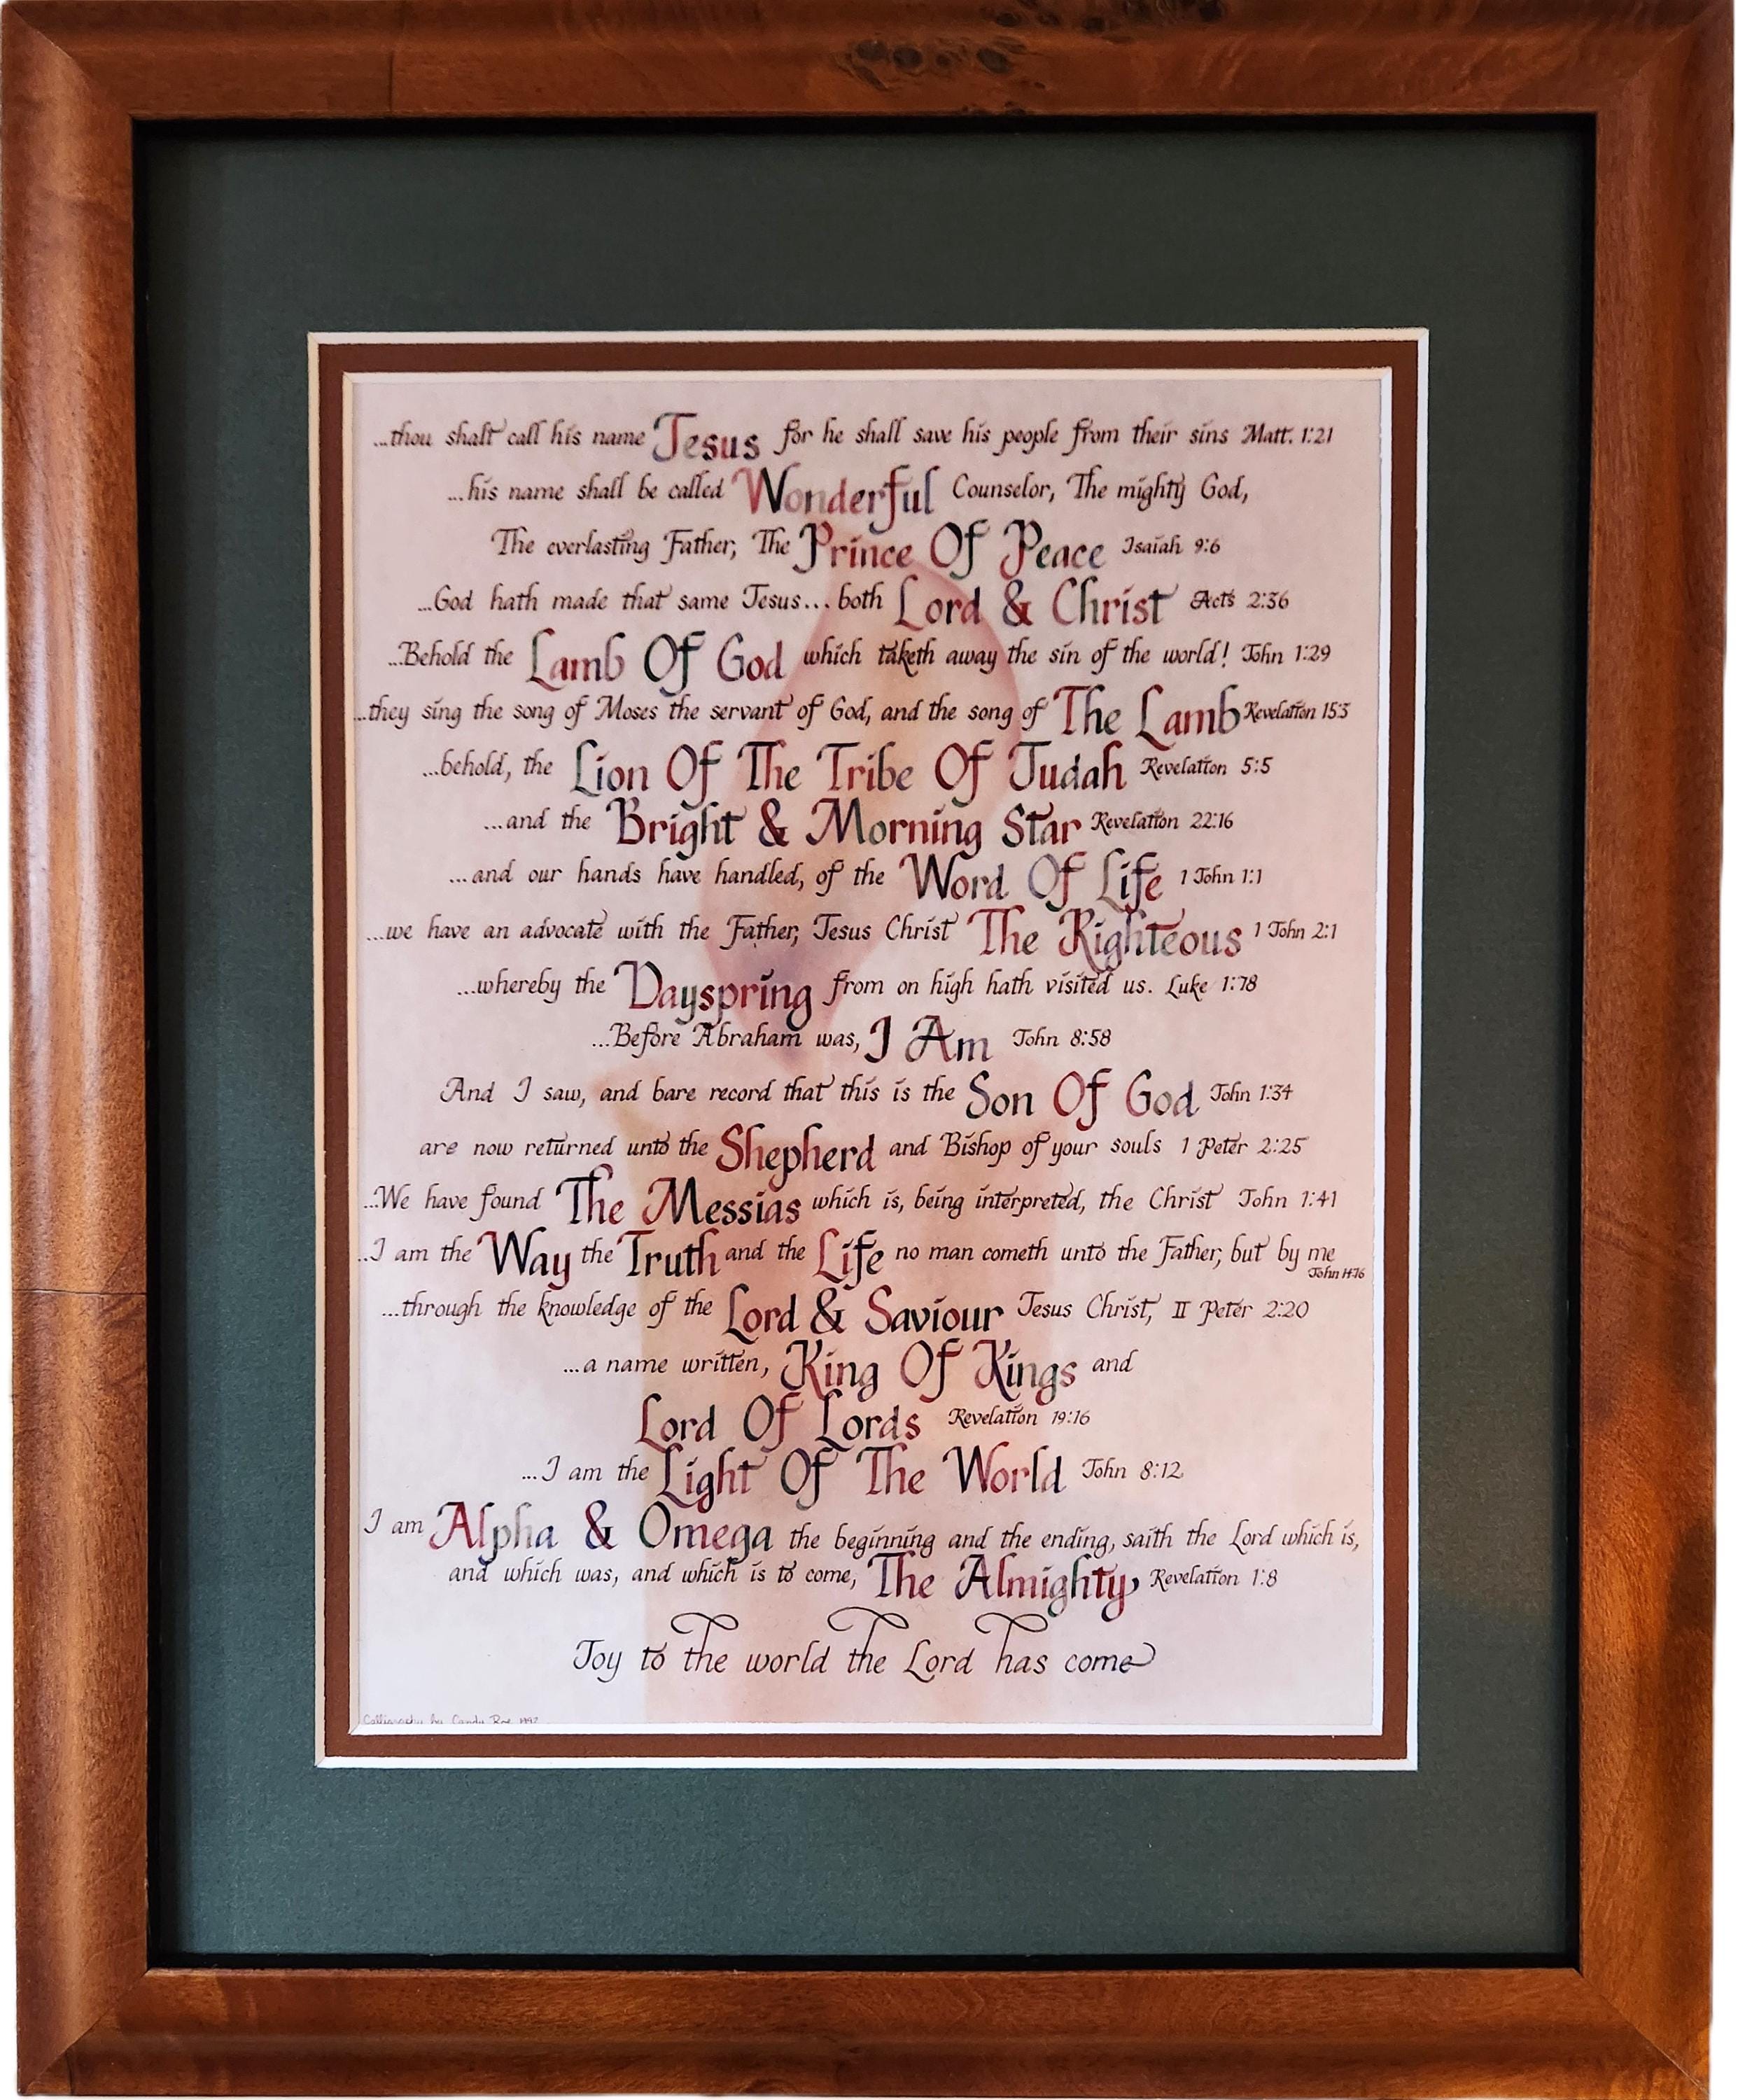 ...thou shalt call his name Jesus for he shall save his people from their sins Matt. 1:21
...his name shall be called Wonderful Counselor, The mighty God,
The everlasting Father, The Prince Of Peace Isaiah 9:6
...God hath made that same Jesus... both Lord & Christ Acts 2:36
...Behold the Lamb Of God which taketh away the sin of the world! John 1:29
...they sing the song of Moses the servant of God, and the song of The Lamb Revelation 15:3
...behold, the Lion Of The Tribe Of Judah Revelation 5:5
...and the Bright & Morning Star Revelation 22:16
...and our hands have handled, of the Word Of Life 1 John 1:1
...we have an advocate with the Father, Jesus Christ The Righteous 1 John 2:1
...whereby the Dayspring from on high hath visited us. Luke 1:78
...Before Abraham was, I Am John 8:58
And I saw, and bare record that this is the Son Of God John 1:34
are now returned unto the Shepherd and Bishop of your souls 1 Peter 2:25
...We have found The Messias which is, being interpreted, the Christ John 1:41
...I am the Way the Truth and the Life no man cometh unto the Father, but by me
John
...through the knowledge of the Lord & Saviour Jesus Christ, II Peter 2:20
...a name written, King Of Kings and
Lord Of Lords Revelation 19:16
...I am the Light Of The World John 8:12
I am Alpha & Omega the beginning and the ending, saith the Lord which is,
and which was, and which is to come, The Almighty, Revelation 1:8
Joy to the world the Lord has come
Calligraphy by Candy Rae 1997